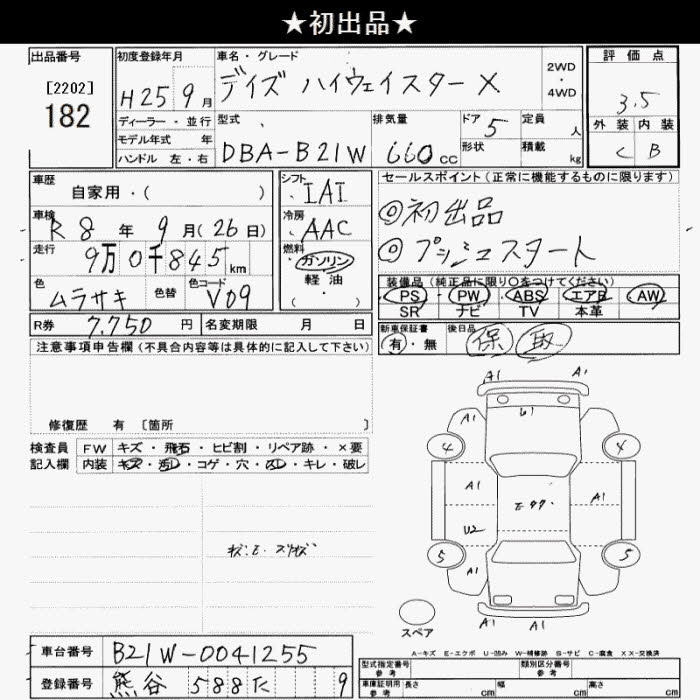 ★初出品★
出品番号
[2202]
182
初度登録年月
H25 9月
ディーラー・並行
モデル年式 年
ハンドル 左・右
車名・グレード
デイズ ハイウェイスターX
2WD
・
4WD
型式
DBA-B21W
排気量
660cc
ドア 5
形状
定員 人
積載 kg
評価点
3.5
外装 内装
C B
車歴
自家用・( )
車検
R8年 9月(26日)
走行
9万0千845km
色
ムラサキ
色替
色コード
V09
シフト
IAI
冷房
AAC
燃料
ガソリン
・
軽油
・
( )
セールスポイント(正常に機能するものに限ります)
◎初出品
◎プッシュスタート
装備品(純正品に限り○をつけてください)
PS PW ABS エアB AW
SR ナビ TV 本革
R券 7.750円
名変期限 月 日
新車保証書
有・無
後日品
保 取
注意事項申告欄(不具合内容等は具体的に記入して下さい)
修復歴 有 〔箇所 〕
検査員
記入欄
FW キズ・飛石・ヒビ割・リペア跡・×要
内装 キズ・汚レ・コゲ・穴・スレ・キレ・破レ
A1 A1
A1 U1
4 4
A1 A1
E-99
U2
5 5
A1 A1
A1 A1
スペア
A-キズ E-エクボ U-凹み W-補修跡 S-サビ C-腐食 XX-交換済
車台番号 B21W-0041255
登録番号 熊谷 588た 9
型式指定番号
参考
類別区分番号
参考
車庫証明用
参考
長さ cm 幅 cm 高さ cm